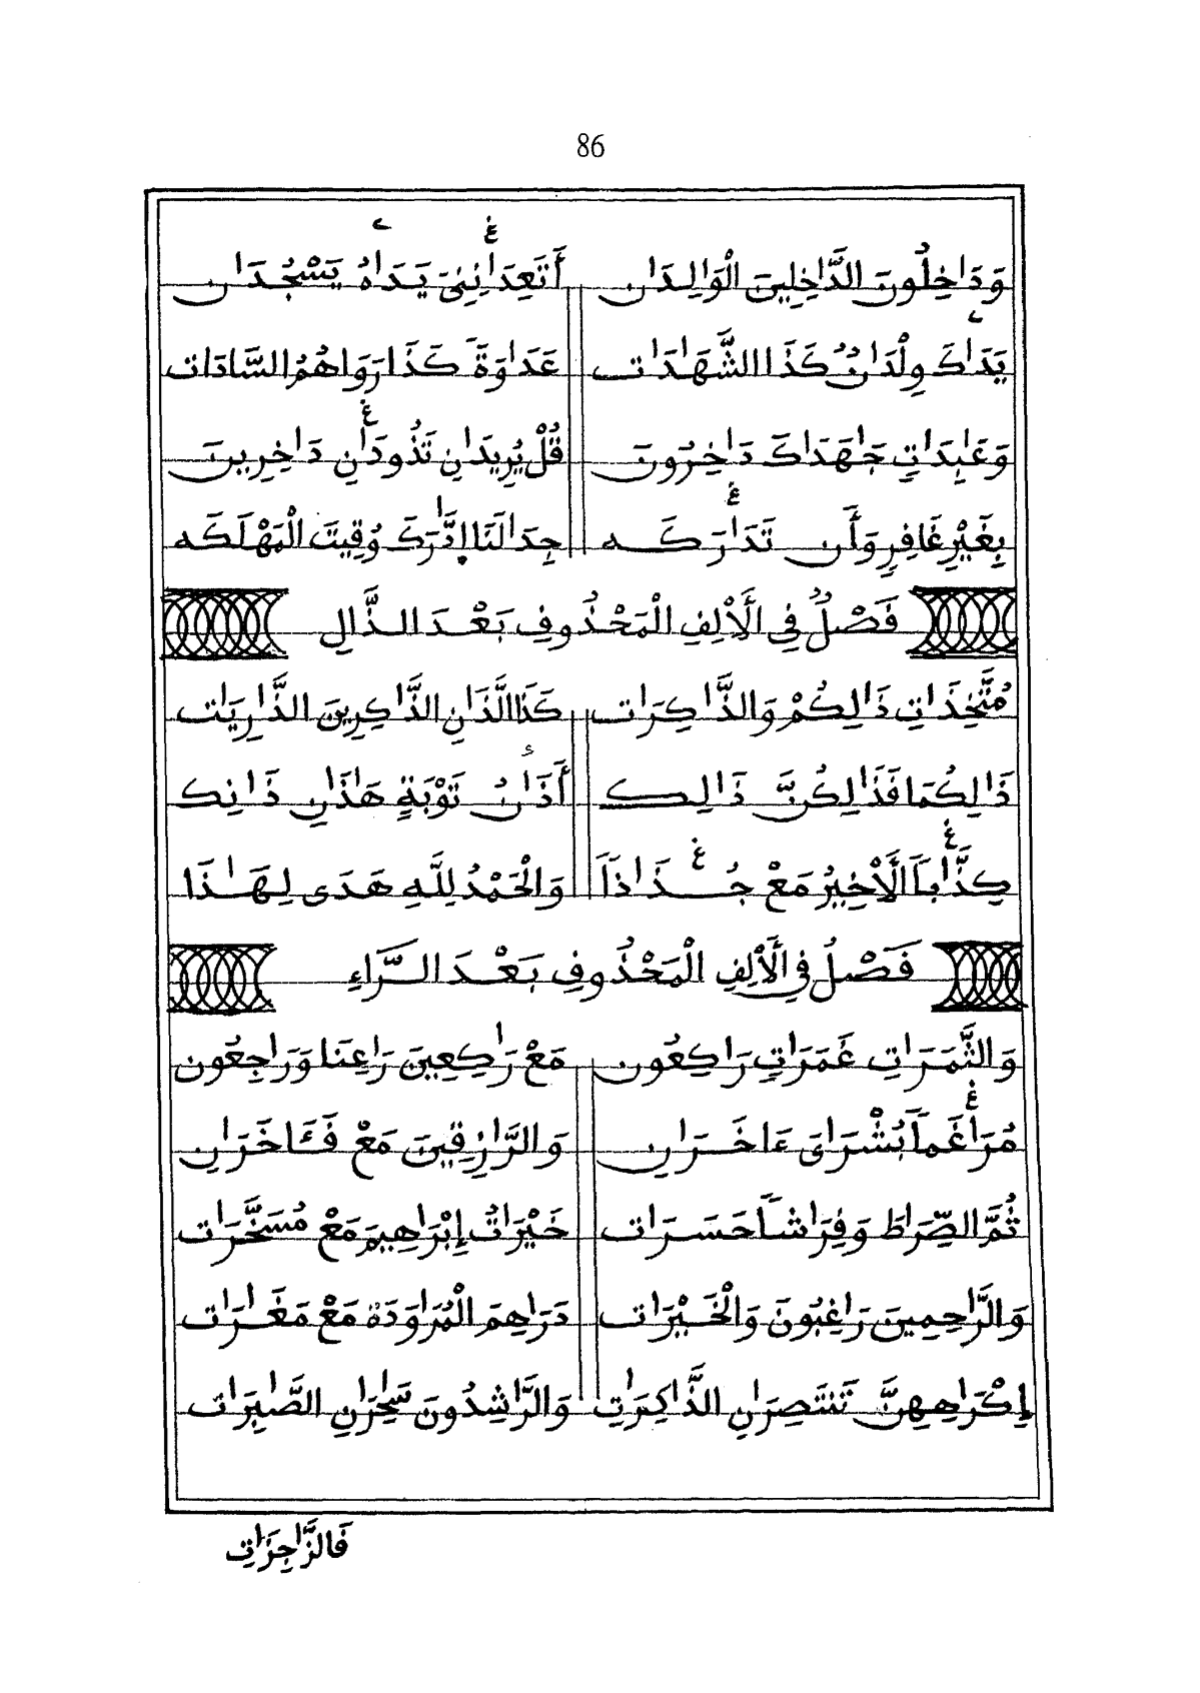 86
وَدَاخِلُونَ الدَّاخِلِينَ الْوَالِدَانِ أَتَعِدَانِنِي يَدَاهُ يَسْجُدَانِ
يَدَاكَ وِلْدَانٌ كَذَا الشَّهَادَاتِ عَدَاوَةَ كَذَا رَوَاهُمُ السَّادَاتِ
وَعَابِدَاتٍ جَاهَدَاكَ دَاخِرُونَ قُلْ يُرِيدَانِ تَذُودَانِ دَاخِرِينَ
بِغَيْرِ غَافِرٍ وَأَن تَدَارَكَه جِدَالَنَا ادَّارَكَ وُقِيتَ الْمَهْلَكَه
فَصْلٌ فِي الْأَلِفِ الْمَحْذُوفِ بَعْدَ الذَّالِ
مُتَّخِذَاتِ ذَالِكُمْ وَالذَّاكِرَاتِ كَذَا الَّذَانِ الذَّاكِرِينَ الذَّارِيَاتِ
ذَالِكُمَا فَذَالِكُنَّ ذَالِكَ أَذَانٌ تَوْبَةٍ هَذَانِ ذَانِكَ
كِذَّاباً الْأَخِيرُ مَعْ جُذَاذاً وَالْحَمْدُ لِلَّهِ هَدَى لِهَاذَا
فَصْلٌ فِي الْأَلِفِ الْمَحْذُوفِ بَعْدَ الرَّاءِ
وَالثَّمَرَاتِ غَمَرَاتٍ رَاكِعُونَ مَعْ رَاكِعِينَ رَاعِنَا وَرَاجِعُونَ
مُرَاغَماً بُشْرَايَ ءَاخَرَانِ وَالرَّازِقِينَ مَعْ فَـَٔاخَرَانِ
ثُمَّ الصِّرَاطَ وَفِرَاشاً حَسَرَاتِ خَيْرَاتٌ إِبْرَاهِيمَ مَعْ مُسَخَّرَاتِ
وَالرَّاحِمِينَ رَاغِبُونَ وَالْخَيْرَاتِ دَرَاهِمَ الْمُرَاوَدَةْ مَعْ مَغَارَاتِ
إِكْرَاهِهِنَّ تَنتَصِرَانِ الذَّاكِرَاتِ وَالرَّاشِدُونَ سَاحِرَانِ الصَّابِرَاتِ
فَالزَّاجِرَاتِ